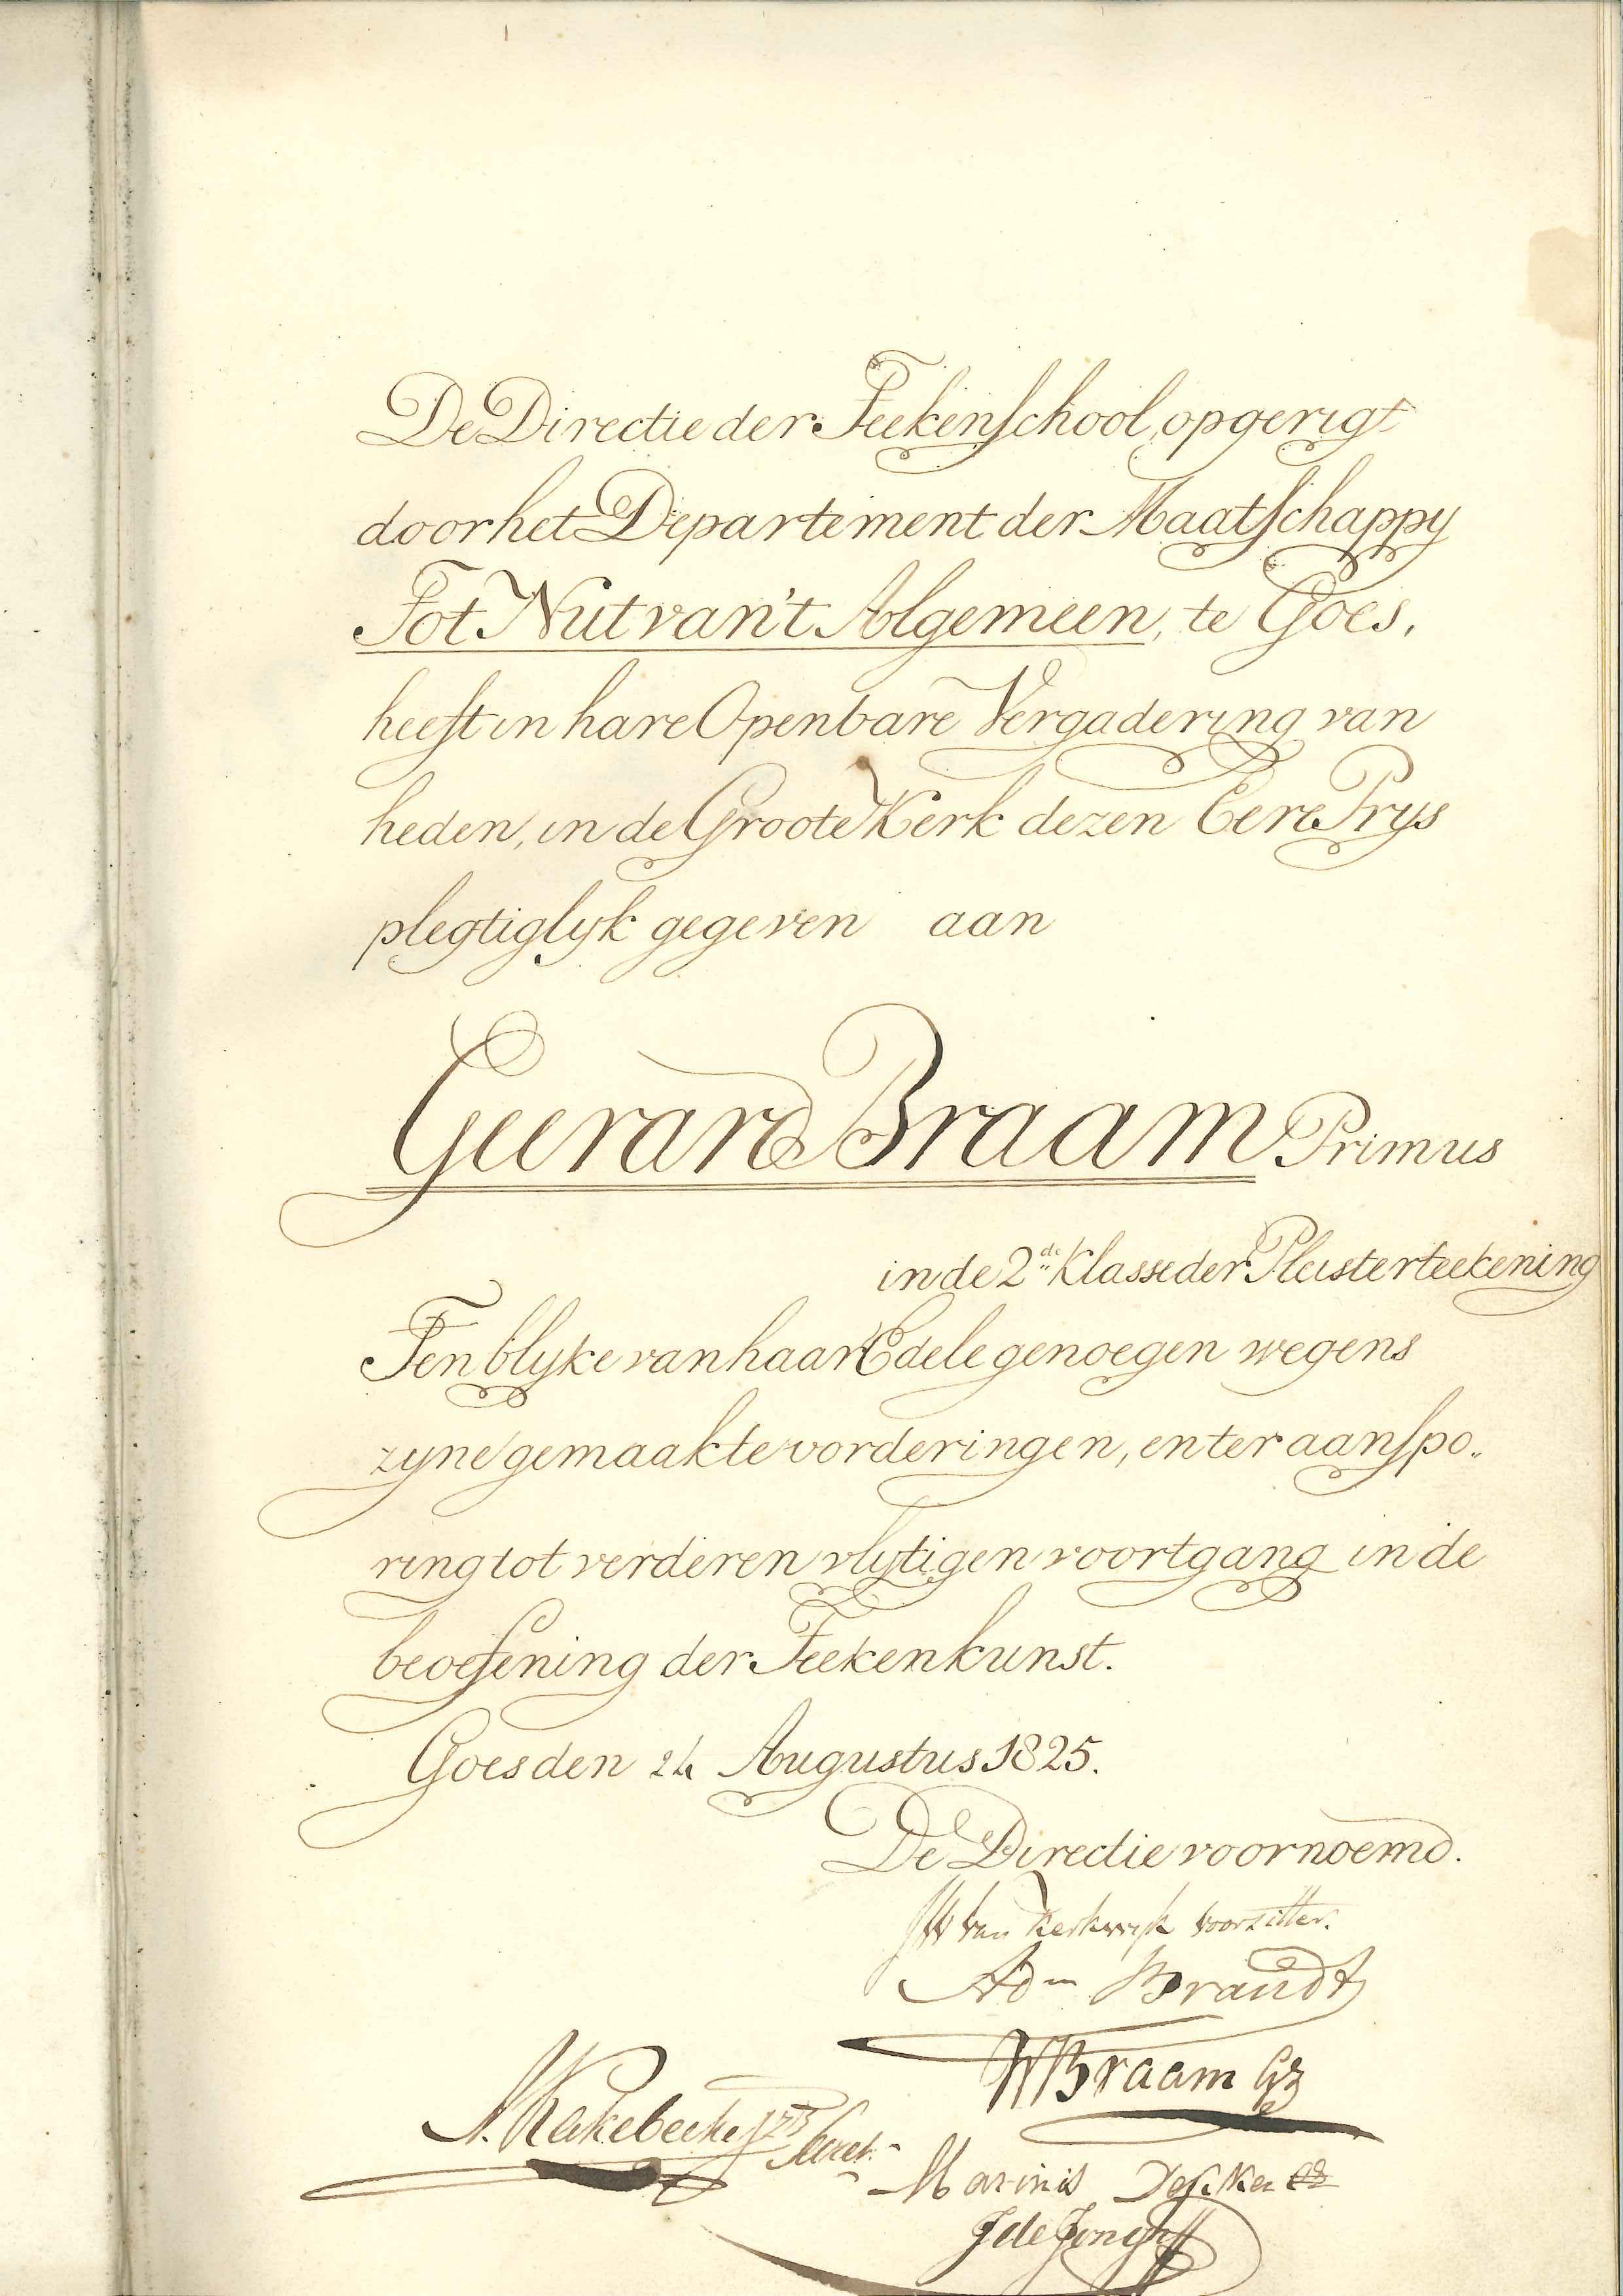 De Directie der Teekenschool, opgerigt
door het Departement der Maatschappy
Tot Nut van't Algemeen, te Goes,
heeft in hare Openbare Vergadering van
heden, in de Groote Kerk dezen Eere Prys
plegtiglyk gegeven aan
Geerard Braam Primus
in de 2de Klasse der Pleisterteekening
Ten blyke van haar Edele genoegen wegens
zyne gemaakte vorderingen, en ter aanspo„
ring tot verderen vlytigen voortgang in de
beoefening der Teekenkunst.
Goes den 24 Augustus 1825.
De Directie voornoemd.
JW van Kerkwyk voorzitter.
Adn Brandt
W Braam Gz
N. Kakebeeke Secret.
Marinis Dekker
J de Jongh